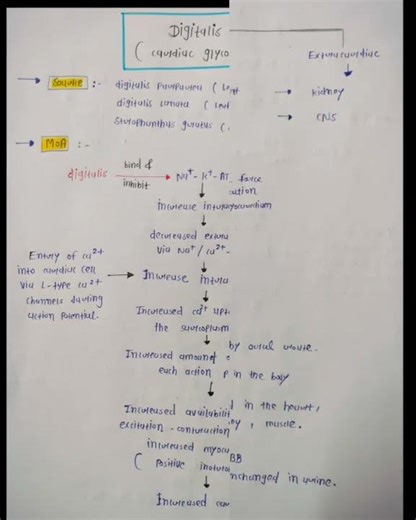 Digitalis
( cardiac glyco
Extracardiac
Source :-
digitalis purpurea ( Leaf
digitalis lanata ( Leaf
Strophanthus gratus (
kidney
CNS
MOA :-
digitalis
bind &
inhibit
Na+- K+- AT
force
ction
increase intramyocardium
decreased extru
via Na+ / ca2+ -
Entry of ca2+
into cardiac cell
via L-type ca2+
channels during
action Potential.
Increase intra
Increased ca2+ upt
the sarcoplasm
by oral route.
Increased amount
each action p
in the body
Increased availabilit
d in the heart,
excitation - contraction
ey, muscle.
increased myoca
BB
( Positive inotro
nchanged in urine.
Increased